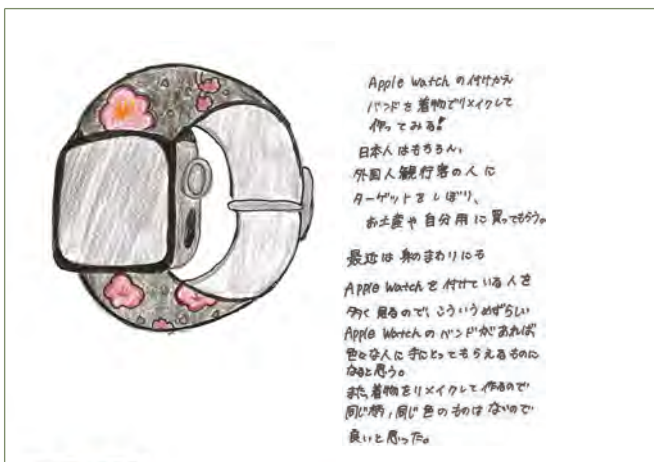 Apple Watch の付けかえ
バンドを着物でリメイクして
作ってみる!
日本人はもちろん、
外国人観行客の人に
ターゲットをしぼり、
お土産や自分用に買ってもらう。
最近は身のまわりにも
Apple Watchを付けている人を
多く見るので、こういうめずらしい
Apple Watchのバンドがあれば
色々な人に手にとってもらえるものに
なると思う。
また、着物をリメイクして作るので
同じ柄、同じ色のものはないので
良いと思った。